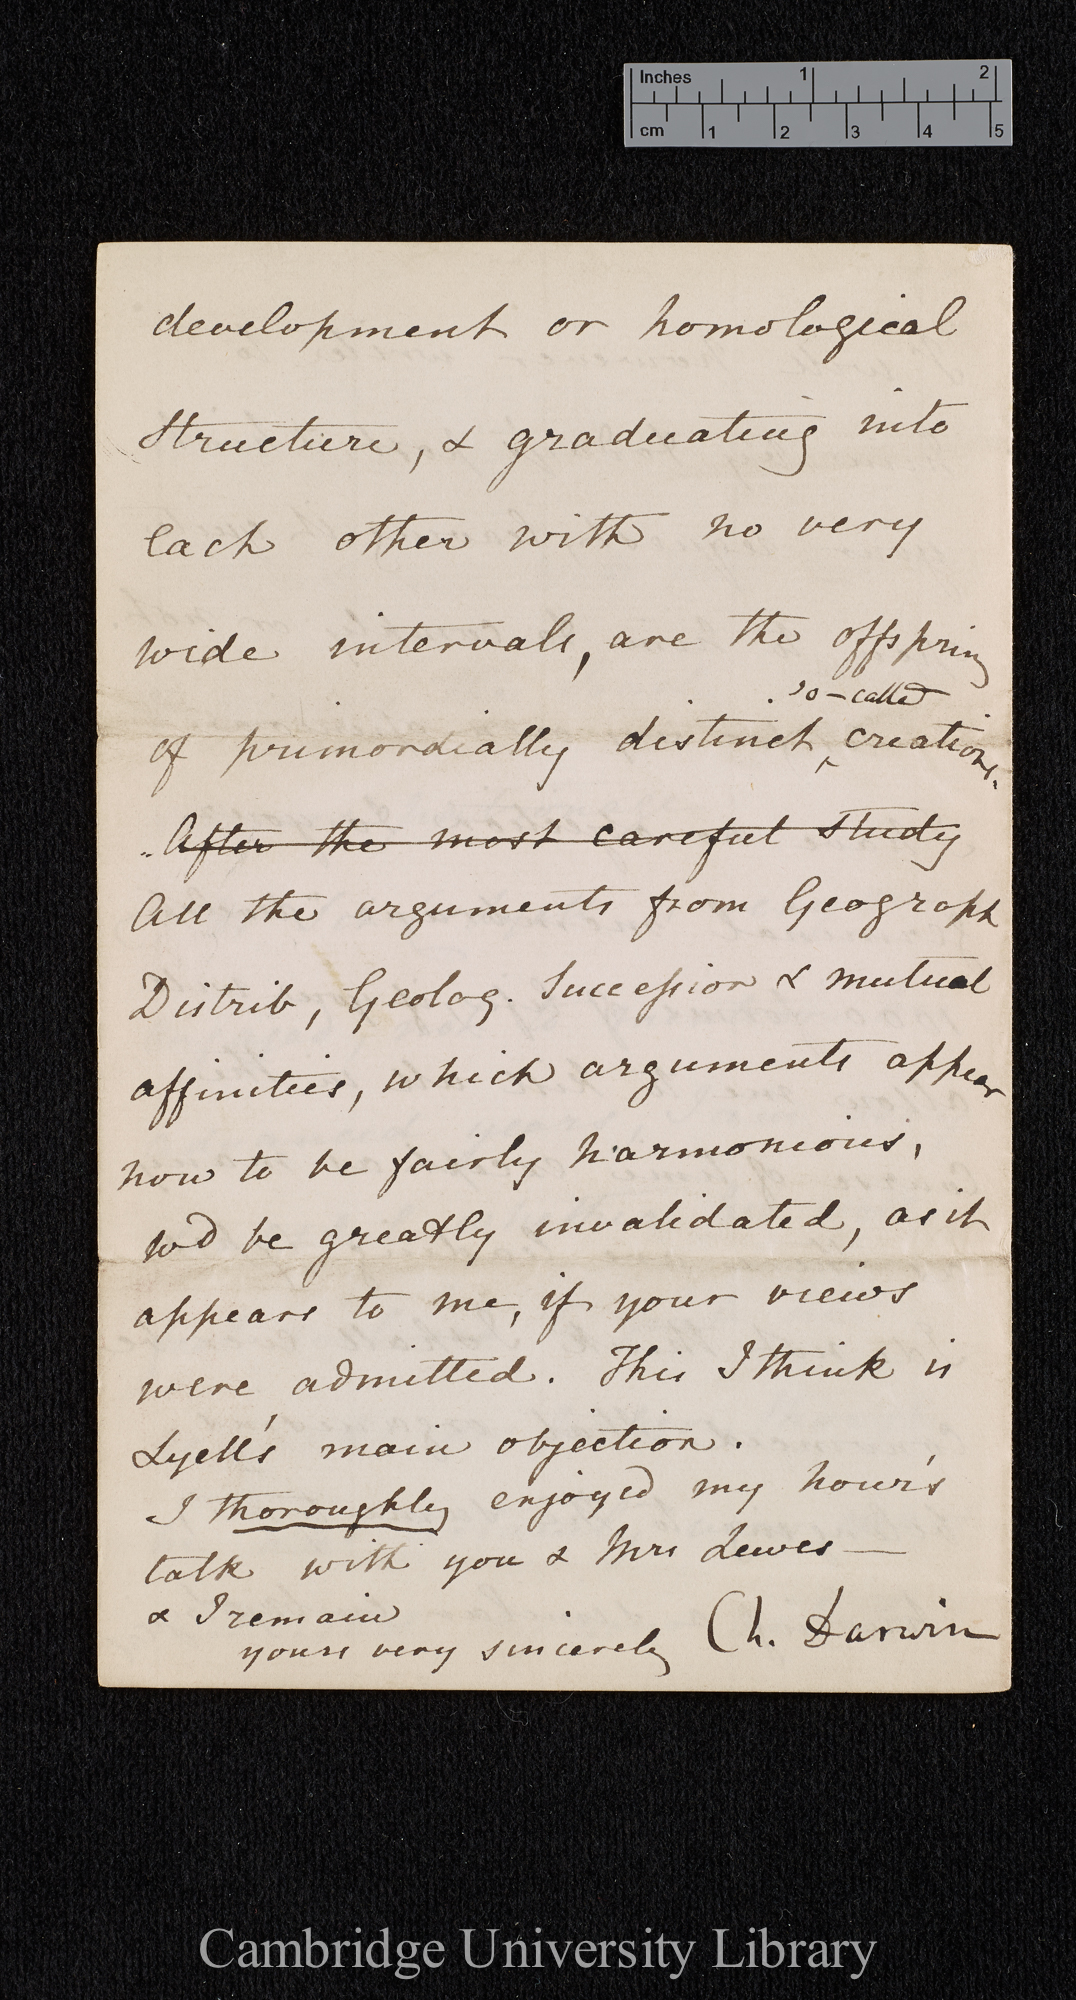 Inches 1 2
cm 1 2 3 4 5
development or homological
structure, & graduating into
each other with no very
wide intervals, are the offspring
so-called
of primordially distinct creations.
After the most careful study
All the arguments from Geograph
Distrib, Geolog. Succession & mutual
affinities, which arguments appear
now to be fairly harmonious,
wd be greatly invalidated, as it
appears to me, if your views
were admitted. This I think is
Lyell's main objection.
I thoroughly enjoyed my hour's
talk with you & Mrs Lewes—
& I remain
yours very sincerely Ch. Darwin
Cambridge University Library